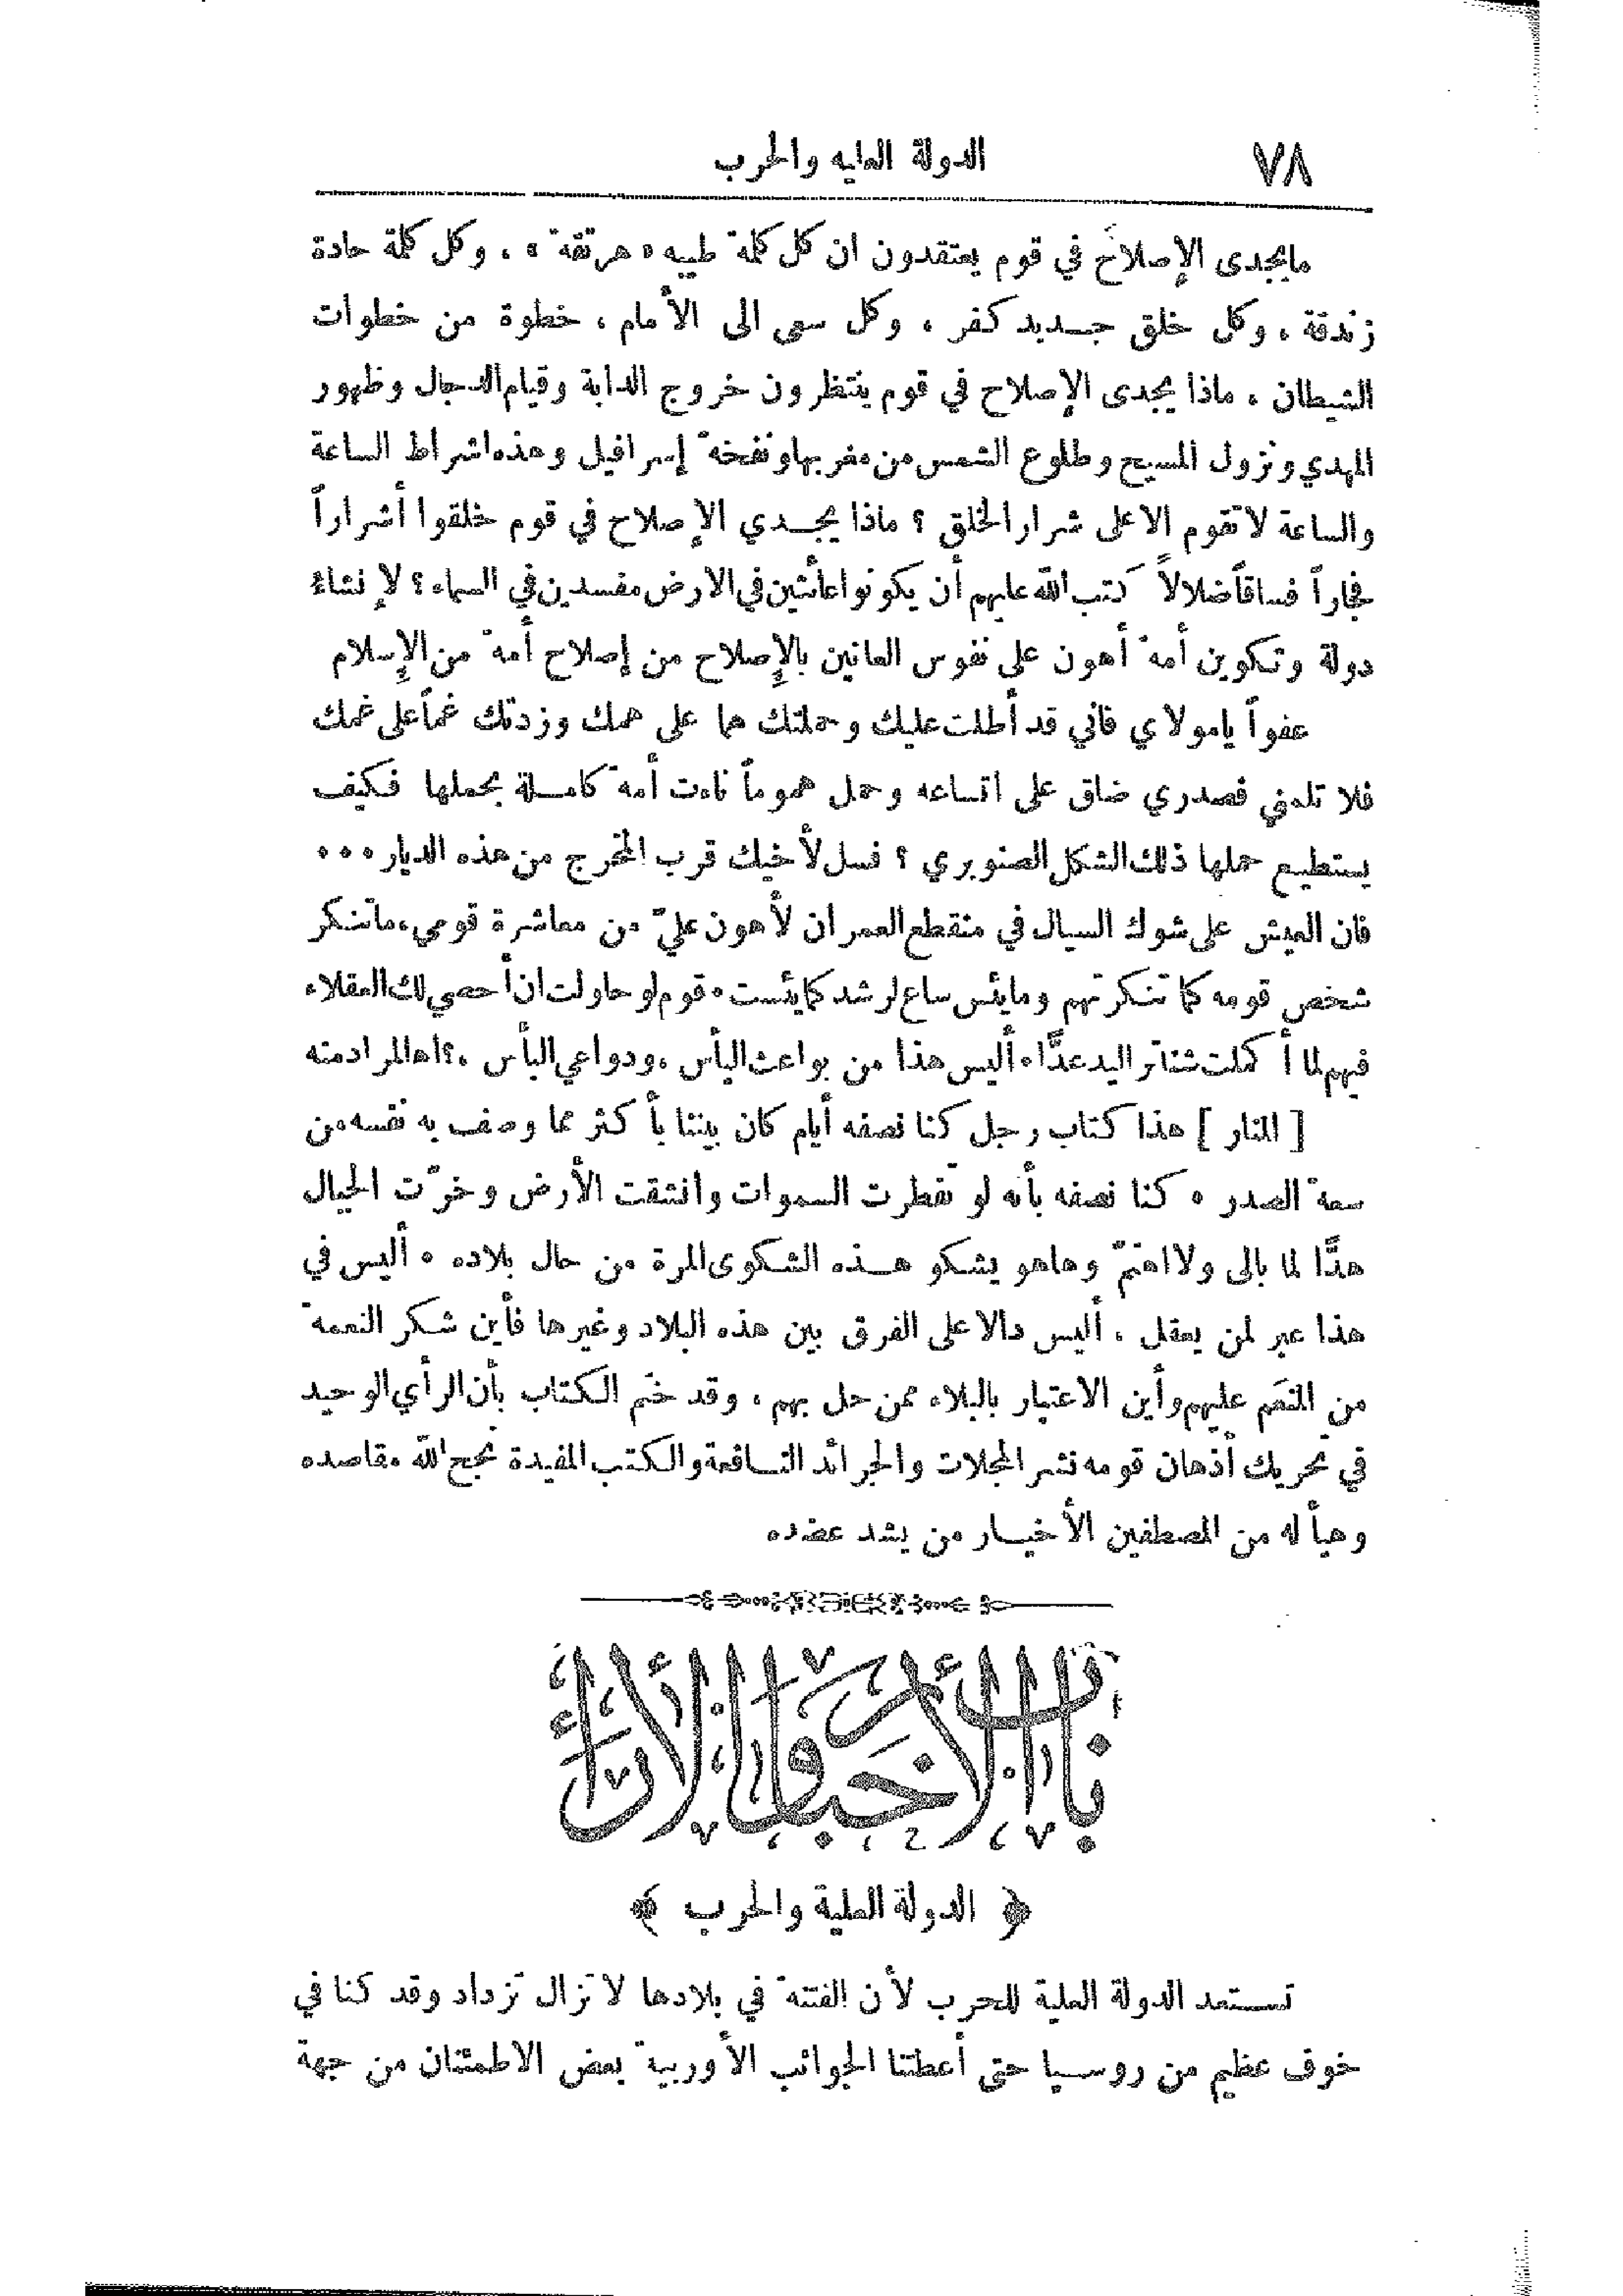 ٧٨ الدولة العليه والحرب
مايجدى الإصلاح في قوم يعتقدون ان كل كلمة طيبه «هرتقة» ، وكل كلمة حادة
زندقة ، وكل خلق جديد كفر ، وكل سعي الى الأمام ، خطوة من خطوات
الشيطان ، ماذا يجدى الإصلاح في قوم ينتظرون خروج الدابة وقيام الدجال وظهور
المهدي ونزول المسيح وطلوع الشمس من مغربها ونفخة إسرافيل وهذه اشراط الساعة
والساعة لا تقوم الا على شرار الخلق ؟ ماذا يجدي الإصلاح في قوم خلقوا أشراراً
فجاراً فساقاً ضلالاً كتب الله عليهم أن يكونوا عائثين في الارض مفسدين في السماء ؟ لإنشاء
دولة وتكوين أمة أهون على نفوس العانين بالإصلاح من إصلاح أمة من الإسلام
عفواً يامولاي فاني قد أطلت عليك وحملتك هما على همك وزدتك غماً على غمك
فلا تلمني فصدري ضاق على اتساعه وحمل هموماً ناءت أمة كاملة بحملها فكيف
يستطيع حملها ذلك الشكل الصنوبري ؟ فسل لأخيك قرب المخرج من هذه الديار ...
فان العيش على شوك السيال في منقطع العمران لأهون عليّ من معاشرة قومي، ماتنكر
شخص قومه كما تنكرتهم وما يئس ساع لرشد كما يئست . قوم لو حاولت ان أحصي لك العقلاء
فيهم لما أكملت شناتر اليد عدًّا . أليس هذا من بواعث اليأس ، ودواعي البأس ،؟ اه المراد منه
[ المنار ] هذا كتاب رجل كنا نصفه أيام كان بيننا بأكثر مما وصف به نفسه من
سعة الصدر . كنا نصفه بأنه لو تفطرت السموات وانشقت الأرض وخرّت الجبال
هدًّا لما بالى ولا اهتمّ وهاهو يشكو هذه الشكوى المرة من حال بلاده . أليس في
هذا عبر لمن يعقل ، أليس دالا على الفرق بين هذه البلاد وغيرها فأين شكر النعمة
من المنعَم عليهم وأين الاعتبار بالبلاء ممن حل بهم ، وقد ختم الكتاب بأن الرأي الوحيد
في تحريك أذهان قومه نشر المجلات والجرائد النافعة والكتب المفيدة نجح الله مقاصده
وهيأ له من المصطفين الأخيار من يشد عضده
باب الأخبار والآراء
﴿ الدولة العلية والحرب ﴾
تستعد الدولة العلية للحرب لأن الفتنة في بلادها لا تزال تزداد وقد كنا في
خوف عظيم من روسيا حتى أعطتنا الجوائب الأوربية بعض الاطمئنان من جهة